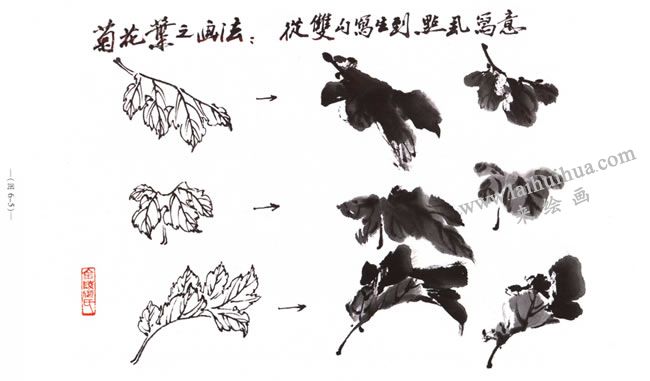 菊花葉之画法：從雙勾寫生到點虱寫意
—(图6-5)—
www.laihuihua.com
来绘画